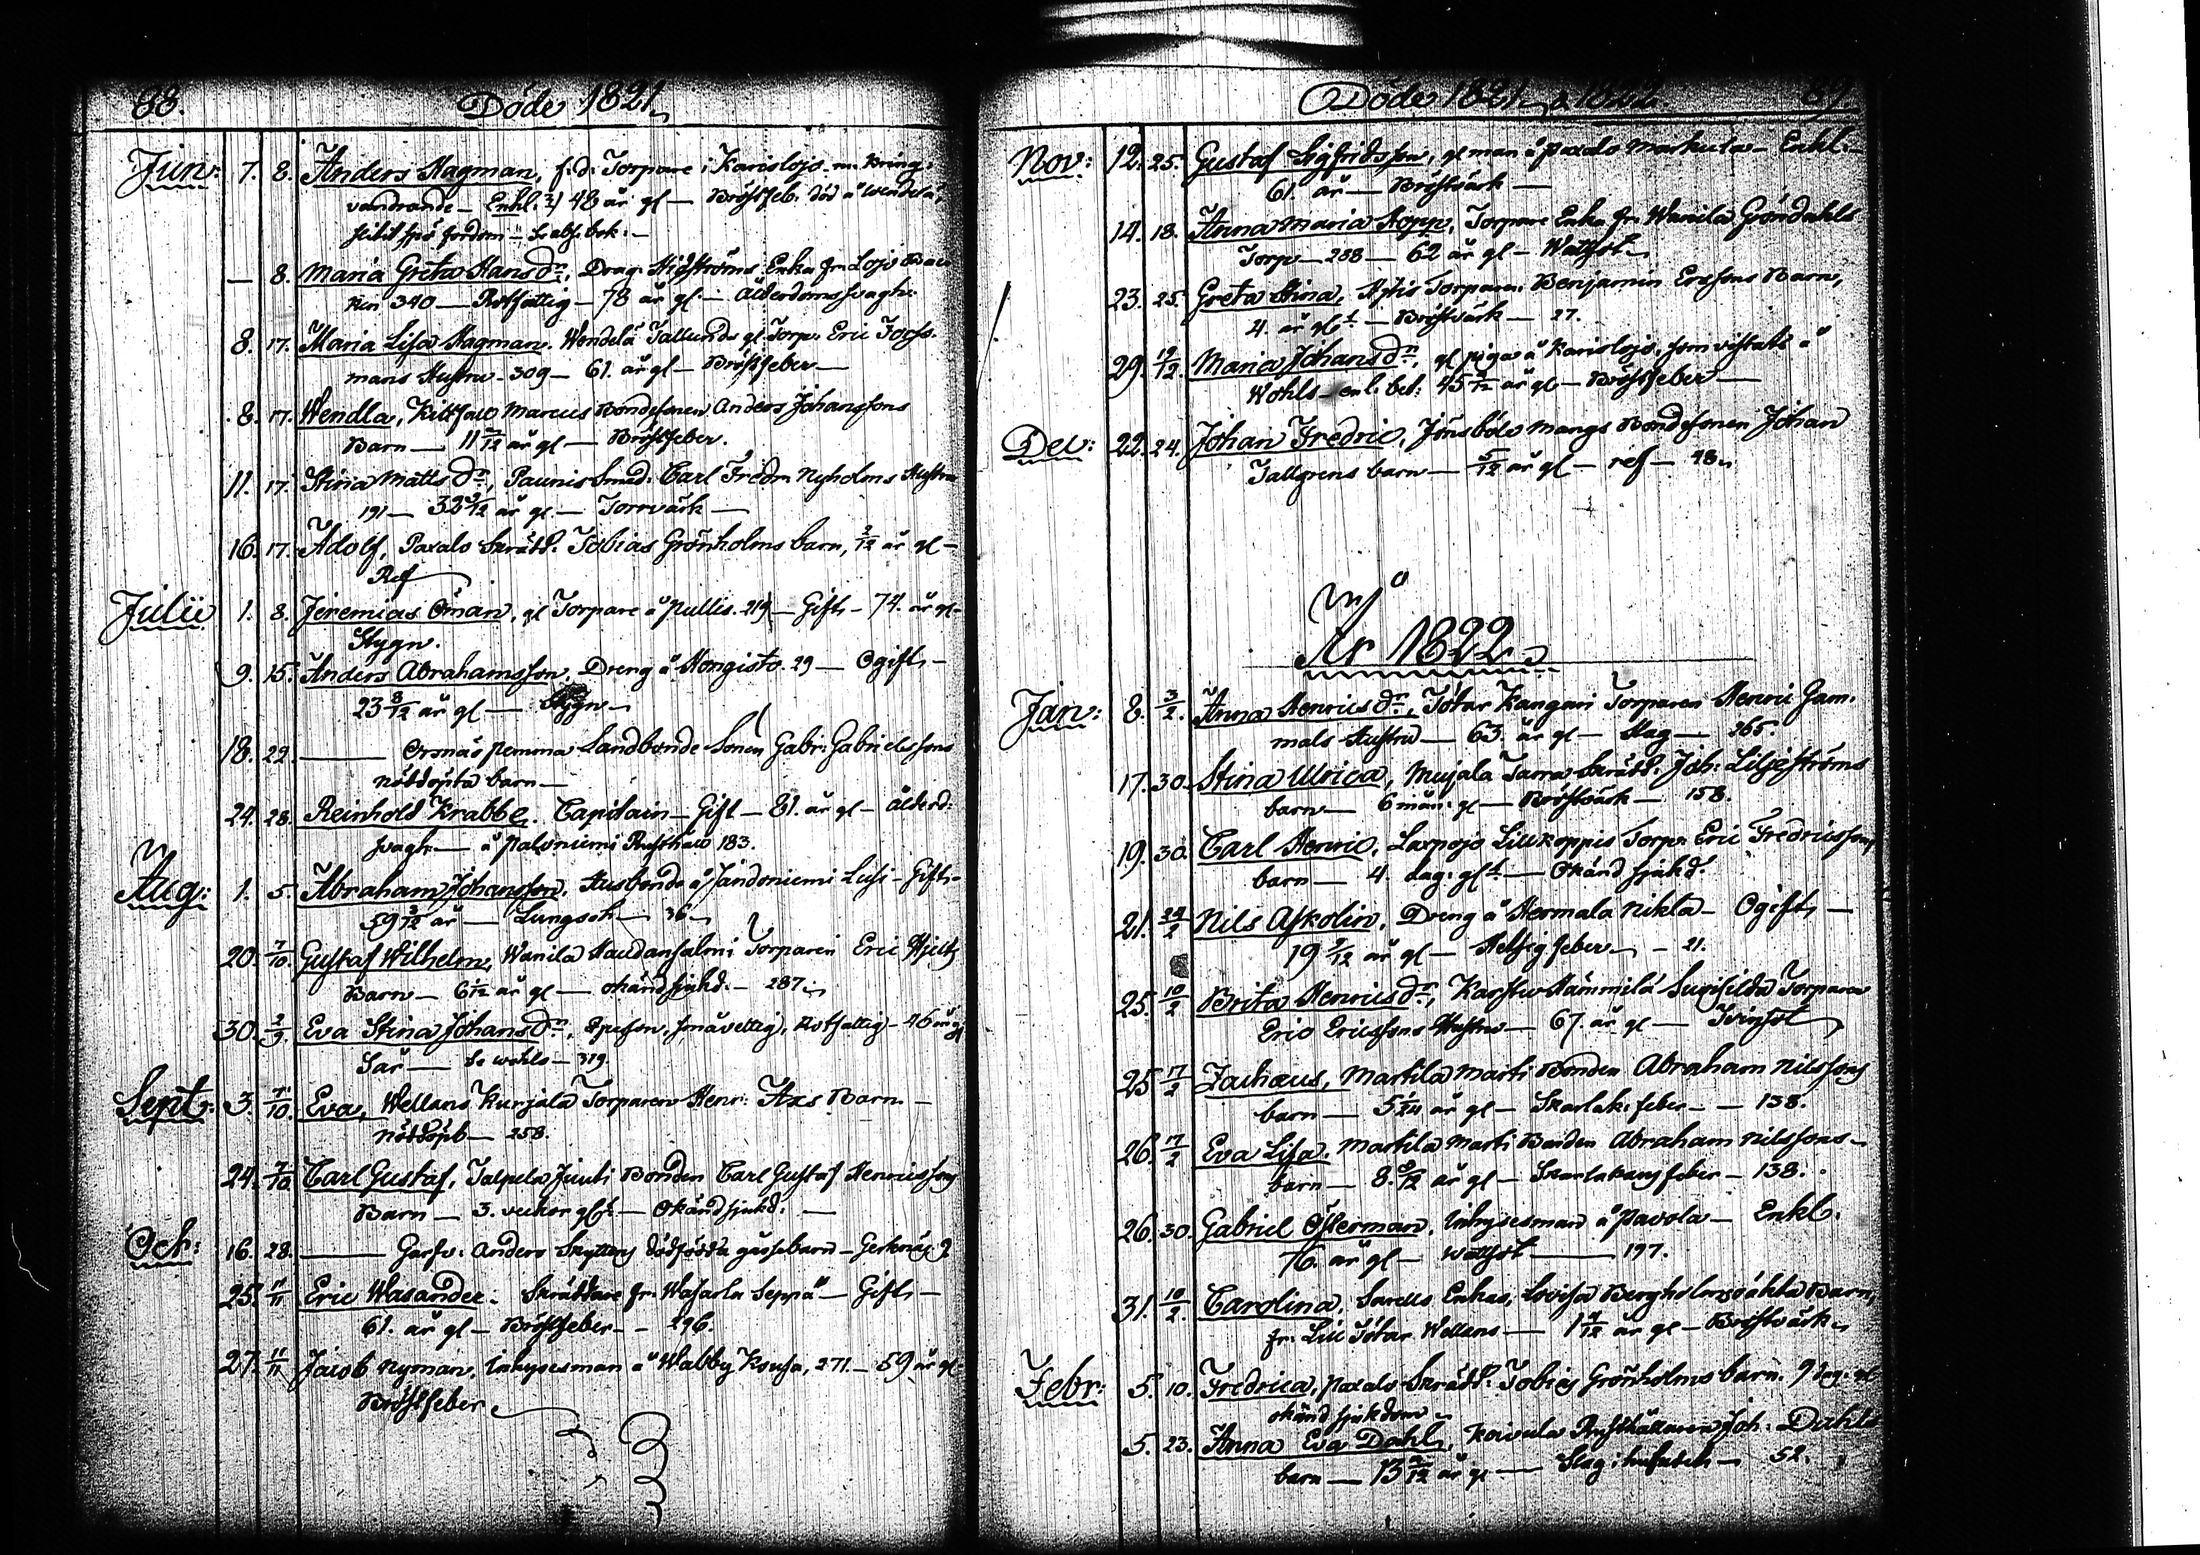 88.
Döde 1821
Jun: 7. 8. Anders Hagman, f.d. Torpare i Karislojo m. kring-
vandrande - Enkl. 48 år gl - Bröstfeb. död å Wendelä,
fordom
- 8. Maria Greta Hansdr, Drag. Enka fr. Lojo
340 - Rotfattig - 78 år gl - Ålderdomssvagh:
8. 17. Maria Lisa Hagman. Wendelä Tallunds gl. Torp. Eric Forss-
mans Hustru - 309 - 61. år gl - Bröstfeber -
8. 17. Wendla, Kittfall Marcus Bondesonen Anders Johanssons
Barn - 11 /12 år gl - Bröstfeber.
11. 17. Stina Mattsdr, Paunis Smed. Carl Fredr. Nyholms Hustru
191 - 32 /12 år gl - Torrvärk -
16. 17. Adolf, Paxalo Skrädd. Tobias Grönholms barn, 2/12 år gl -
Ref
Julii 1. 8. Jeremias Öman, gl Torpare å Pullis. 219 - Gift - 74. år gl -
Stygn.
9. 15. Anders Abrahamsson, Dreng å Hongisto. 29 - Ogift -
23 8/12 år gl - Stygn -
18. 22. - Ormnäs Pemma Landbonde Sonen Gabr: Gabrielssons
nöddöpta barn -
24. 28. Reinhold Krabbe. Capitain - Gift - 81. år gl - ålderd:
svagh - å Paloniemi Rusthåll 183.
Aug: 1. 5. Abraham Johansson. Husbonde å Jandoniemi Lusi - Gift -
59 3/12 år - Lungsot - 36
20. 7/10. Gustaf Wilhelm, Wanila Haudansalmi Torparen Eric
Barn - 6 /12 år gl - okänd sjukd. - 287
30. 2/9. Eva Stina Johansdr, svagvettig, Rotfattig - 46 år gl
Sår - Wohls - 319.
Sept: 3. 7/10. Eva, Wellans Kurjala Torparen Henr: Ax's Barn -
Nöddöpt - 258.
24. 7/10 Carl Gustaf, Talpela Juuti Bonden Carl Gustaf Henricssons
Barn - 3. veckor gl - Okänd sjukd. -
Oct: 16. 28. - Garfv: Anders Skyttens dödfödda gossebarn - Gerknäs 9
25. 11/11 Eric Wasander. Skräddare fr. Wasarla Seppä - Gift -
61. år gl - Bröstfeber - 296.
27. 11/11 Jacob Nyman, Inhysesman å Wabby Knusa, 271 - 59 år gl
Bröstfeber
Döde 1821 & 1822.
89.
Nov: 12. 25. Gustaf Sigfridsson, gl man å Paxalo Markula - Enkl: -
61. år - Bröstvärk -
14. 18. Anna Maria Hopp, Torpare Enka fr. Wanila Gröndahls
Torp - 288 - 62 år gl - Wattsot
23. 25. Greta Stina, Torparen Benjamin Ersons Barn,
4. år gl - Bröstvärk - 27.
29. 19/12 Maria Johansdr, gl piga å Karislojo, som vistats å
Wohls - enl. bet: 45 /12 år gl - Bröstfeber -
Dec: 22. 24. Johan Fredric, Jönsböle Mangs Bondesonen Johan
Tallgrens barn - 5/12 år gl - ref - 48
År 1822
Jan: 8. 3/2. Anna Henricsdr, Tötar Kangari Torparen Henric Gam-
mals Hustru - 63. år gl - Slag - 265.
17. 30. Stina Ulrica, Mujala Tarra Skrädd. Joh: Liljeströms
barn - 6 mån. gl - Bröstvärk - 158.
19. 30. Carl Henric, Laxpojo Lillkoppis Torp. Eric Fredricsson
barn - 4. dag. gl - Okänd sjukd.
21. 24/2 Nils Askolin, Dreng å Hermala Nikla - Ogift -
19 /12 år gl - Hetsig feber - 21.
25. 10/2 Brita Henricsdr, Karstu Hämmilä Torparen
Eric Ericssons Hustru - 67. år gl - Tvinsot
25 17/2 Zachæus, Martila Marti Bonden Abraham Nilssons
barn - 5 år gl - Skarlak. feber - 138.
26. 17/2 Eva Lisa, Martila Marti Bonden Abraham Nilssons -
barn - 8. /12 år gl - Skarlakans feber - 138.
26. 30. Gabriel Österman, Inhysesman å Pavola - Enkl.
76. år gl - Wattsot - 197.
31. 10/2. Carolina, Sarells Enkas, Lovisa Bergholms oäkta Barn,
fr. Lill Tötar Wellans - 1 /12 år gl - Bröstvärk
Febr: 5. 10. Fredrica, Paxalo Skrädd. Tobias Grönholms barn. 9 dag. gl
okänd sjukdom
5. 23. Anna Eva Dahl, Koivula Rusthållaren Joh: Dahls
barn - 13 /12 år gl - Slag i hufvudet - 52.